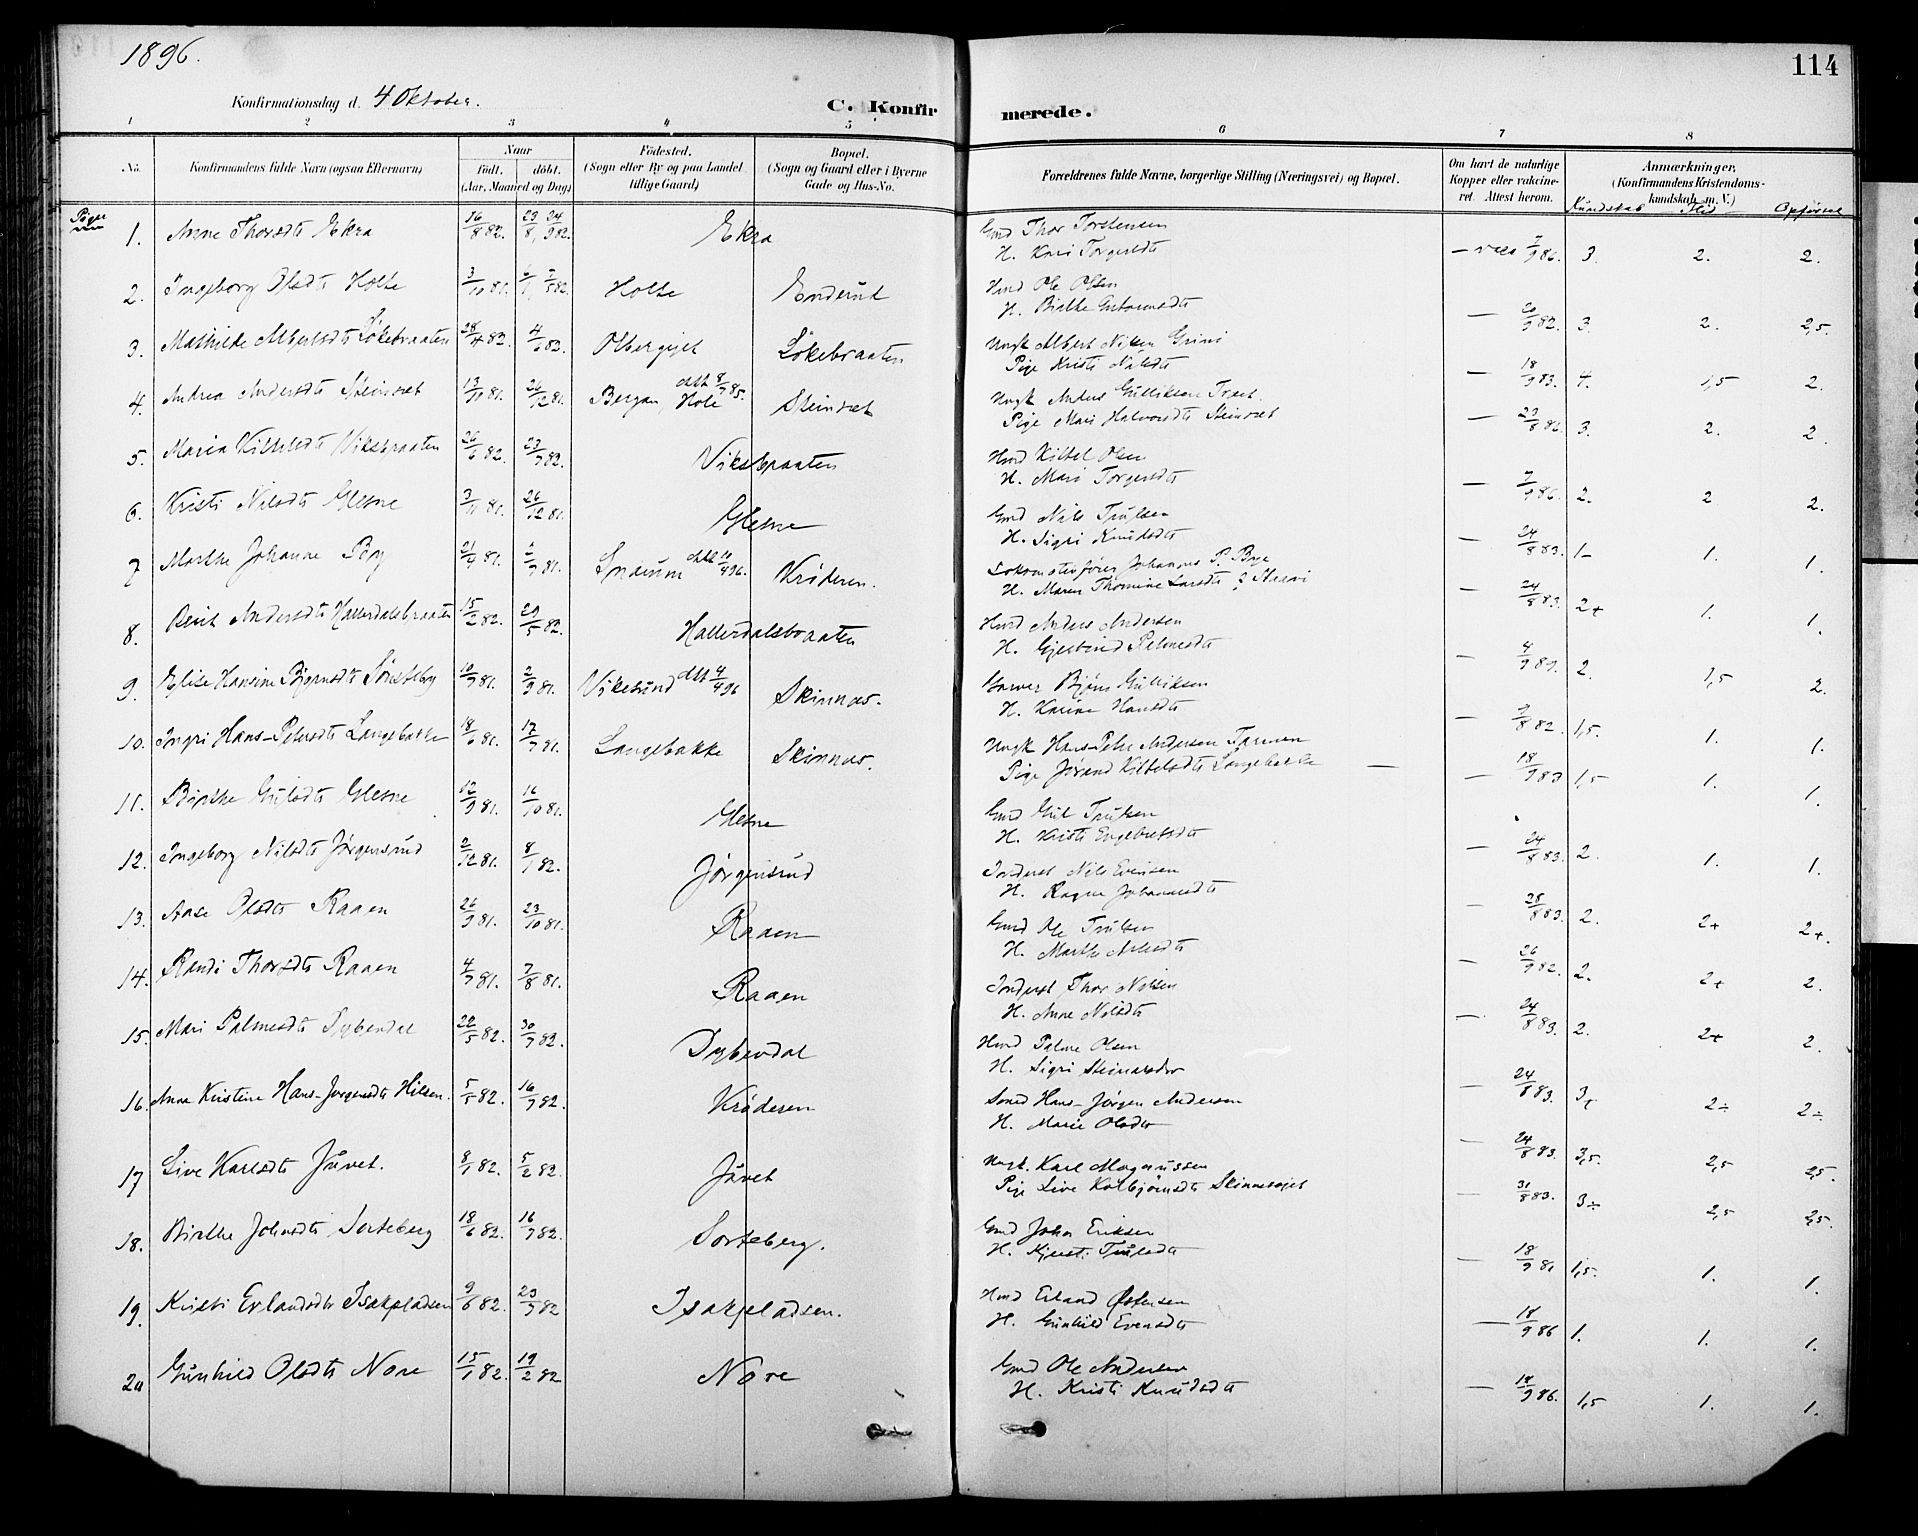 1896.
114
Konfirmationsdag d. 4 Oktober.
C. Konfir merede.
1 2 3 4 5 6 7 8
No. Konfirmandens fulde Navn (ogsaa Efternavn)
Naar
født. døbt.
(Aar, Maaned og Dag)
Födested.
(Sogn eller By og paa Landet tillige Gaard)
Bopæl.
(Sogn og Gaard eller i Byerne Gade og Hus-No.
Forældrenes fulde Navne, borgerlige Stilling (Næringsvei) og Bopæl.
Om havt de naturlige Kopper eller vakcineret. Attest herom.
Anmærkninger,
(Konfirmandens Kristendomskundskab m. V.)
Kundskab Flid Opførsel
Piger
1. Anne Thorsdt Ekra 16/8 82. 23/8, 24/9 82. Ekra
Gmd Thor Torstensen
H. Kari Torgersdt — vacc 7/9 86. 3. 2. 2.
2. Ingeborg Olsdt Holte 3/10 81. Holte Enderud
Hmd Ole Olsen
H. Birthe — 20/9 82. 3. 2. 2,5.
3. Mathilde Albertsdt Løkebraaten 28/4 82. 4/6 82. Olbergejet Løkebraaten
Ungk Albert Nilsen
Pige Kristi Nilsdt — 18/9 83. 4. 1,5 2.
4. Andrea Andersdt Steinset 13/11 81. 26/12 81. Bergan, Hole attst 8/7 85. Steinset
Ungk Anders Gulliksen
Pige Mari Halvorsdt Steinset — 23/8 86. 3. 2. 2.
5. Maria Kittelsdt Viksbraaten 26/6 82. 23/7 82. Viksbraaten
Hmd Kittel Olsen
H. Mari Torgersdt — 7/9 86. 2. 2 2.
6. Kristi Nilsdt Glesne 3/11 81. 26/12 81. Glesne
Gmd Nils Trulsen
H. Sigri Knudsdt — 24/8 83. 1- 1. 1.
7 Marthe Johanne Bry 21/4 81. Modum attst 10/4 96. Krøderen.
Lokomotivfører Johannes P. Bye
H. Maren Thomine Larsdt — 24/8 83. 2+ 1. 1.
8. Berit Andersdt Hallerdalsbraaten 15/2 82. 29/5 82. Hallerdalsbraaten
Hmd Anders Andersen
H. Gjertrud Palmesdt — 4/9 89. 2. 1,5 2.
9. Elise Hansine Bjørnsdt Sønsteby 10/7 81. 2/9 81. Vikesund attst 4/4 96 Skinnas.
Garver Bjørn Gulliksen
H. Karine Hansdt — 82. 1,5. 1. 1.
10. Ingri Hans-Petersdt Langebakke 18/6 81. 17/7 81. Langebakke Skinnas.
Ungk Hans-Peter Andersen
Pige Jørand Kittelsdt Langebakke — — 18/9 83 1,5 1. 1.
11. Birthe Gulsdt Glesne 12/9 81. 16/10 81. Glesne
Gmd Gul Trulsen
H. Kristi Engebretsdt — 24/8 83. 2. 1. 1.
12. Ingeborg Nilsdt Jørgensrud 2/12 81. 8/1 82. Jørgensrud
Inderst Nils Evensen
H. Ragne Johannesdt — 28/8 83. 2. 2+ 2+.
13. Aase Olsdt Raaen 26/9 81. 23/10 81. Raaen
Gmd Ole Trulsen
H. Marthe — 26/9 82. 2. 2+ 2.
14. Randi Thorsdt Raaen 4/7 81. 7/8 81. Raaen
Inderst Thor Nilsen
H. Anne Nilsdt — 24/8 83. 2. 2+ 2.
15. Mari Palmesdt Dybendal 22/5 82. 30/7 82. Dybendal
Hmd Palme Olsen
H. Sigri Steinarsdtr — 24/8 83. 3+ 2÷ 2÷
16. Anne Kristine Hans-Jørgensdt Hilsen. 5/5 82. 16/7 82. Krøderen
Smed Hans-Jørgen Andersen
H. Marie Olsdtr — 24/8 83. 3,5. 2,5 2,5.
17 Live Karlsdt Juvet. 8/1 82. 5/2 82. Juvet
Ungk. Karl Magnussen
Pige Live Kolbjørnsdt Skinnesejet — 31/8 83. 3÷ 2,5 2,5.
18. Birthe Johnsdt Sorteberg 18/6 82. 16/7 82. Sorteberg.
Gmd John Eriksen
H. Kjersti Trulsdt — 18/9 81 1,5. 1. 1.
19. Kristi Erlandsdtr Isakpladsen 9/6 82. 23/7 82 Isakpladsen.
Hmd Erland Østensen
H. Gunhild Evensdt — 18/9 86 1. 1. 1.
20 Gunhild Olsdt Nore 15/1 82. 19/2 82 Nore
Gmd Ole Andersen
H. Kristi Knudsdt — 18/9 86. 1,5 1. 1.